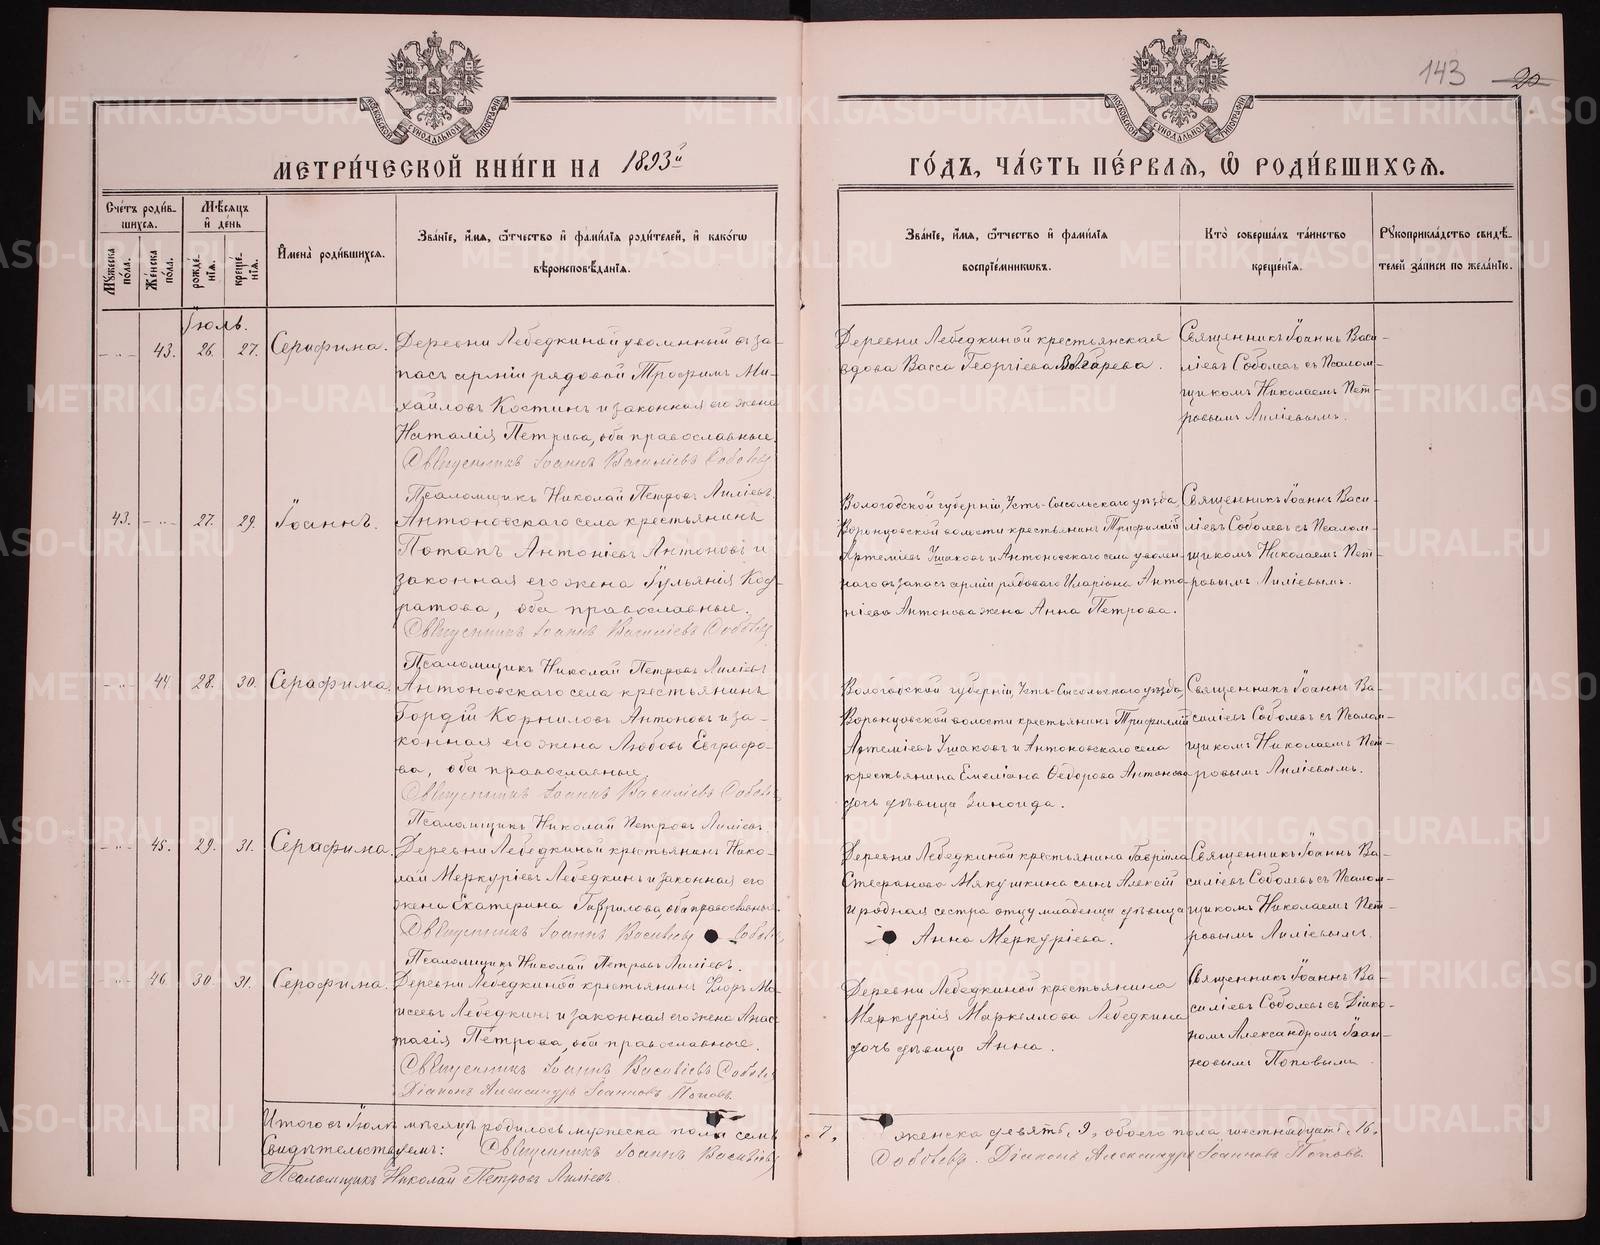 143 20
МОСКОВСКОЙ СѴНОДАЛЬНОЙ ТИПОГРАФІИ
МОСКОВСКОЙ СѴНОДАЛЬНОЙ ТИПОГРАФІИ
МЕТРИ́ЧЕСКОЙ КНИ́ГИ НА 1893й
ГО́ДЪ, ЧА́СТЬ ПЕ́РВАѦ, Ѡ҆ РОДИ́ВШИХСѦ.
Сче́тъ роди́в-
шихсѧ.
Мꙋ́жеска по́ла.
Же́нска по́ла.
Мѣ́сѧцъ
и҆ де́нь
рожде́нїѧ.
креще́нїѧ.
И҆мена̀ роди́вшихсѧ.
Зва́нїе, и҆́мѧ, ѻ҆́тчество и҆ фами́лїѧ роди́телей, и҆ како́гѡ
вѣроисповѣ́данїѧ.
Зва́нїе, и҆́мѧ, ѻ҆́тчество и҆ фами́лїѧ
воспрїе́мникѡвъ.
Кто̀ соверша́лъ та́инство
креще́нїѧ.
Рꙋкоприкла́дство свидѣ́-
телей за́писи по жела́нїю.
Іюль.
43. 26. 27. Серафима.
Деревни Лебедкиной уволенный въ за-
пасъ арміи рядовой Трофимъ Ми-
хайловъ Костинъ и законная его жена
Наталія Петрова, оба православные.
Священникъ Іоаннъ Василіевъ Соболевъ
Псаломщикъ Николай Петровъ Лиліевъ.
Деревни Лебедкиной крестьянская
вдова Васса Георгіева
Священникъ Іоаннъ Васи-
ліевъ Соболевъ съ Псалом-
щикомъ Николаемъ Пет-
ровымъ Лиліевымъ.
43. 27. 29. Іоаннъ.
Антоновскаго села крестьянинъ
Потапъ Антоніевъ Антоновъ и
законная его жена Іульянія Код-
ратова, оба православные.
Священникъ Іоаннъ Василіевъ Соболевъ
Псаломщикъ Николай Петровъ Лиліевъ
Вологодской губерніи, Усть-Сысольскаго уѣзда
Воронцовской волости крестьянинъ Трифилій
Артеміевъ Ушаковъ и Антоновскаго села уволен-
наго въ запасъ арміи рядоваго Иларіона Анто-
ніева Антонова жена Анна Петрова.
Священникъ Іоаннъ Васи-
ліевъ Соболевъ съ Псалом-
щикомъ Николаемъ Пет-
ровымъ Лиліевымъ.
44. 28. 30. Серафима.
Антоновскаго села крестьянинъ
Гордій Корниловъ Антоновъ и за-
конная его жена Любовь Евграфо-
ва, оба православные.
Священникъ Іоаннъ Василіевъ Соболевъ
Псаломщикъ Николай Петровъ Лиліевъ.
Вологодской губерніи, Усть-Сысольскаго уѣзда,
Воронцовской волости крестьянинъ Трифилій
Артеміевъ Ушаковъ и Антоновскаго села
крестьянина Емеліана Ѳедорова Антонова
дочь дѣвица Зиноида.
Священникъ Іоаннъ Ва-
силіевъ Соболевъ съ Псалом-
щикомъ Николаемъ Пет-
ровымъ Лиліевымъ.
45. 29. 31. Серафима.
Деревни Лебедкиной крестьянинъ Нико-
лай Меркуріевъ Лебедкинъ и законная его
жена Екатерина Гаврилова, оба православные.
Священникъ Іоаннъ Василіевъ Соболевъ
Псаломщикъ Николай Петровъ Лиліевъ.
Деревни Лебедкиной крестьянина Гавріила
Стефанова Мякушкина сынъ Алексій
и родная сестра отцу младенца дѣвица
Анна Меркуріева.
Священникъ Іоаннъ Ва-
силіевъ Соболевъ съ Псалом-
щикомъ Николаемъ Пет-
ровымъ Лиліевымъ.
46. 30. 31. Серафима.
Деревни Лебедкиной крестьянинъ Егоръ Мо-
исеевъ Лебедкинъ и законная его жена Анас-
тасія Петрова, оба православные.
Священникъ Іоаннъ Василіевъ Соболевъ
Діаконъ Александръ Іоанновъ Поповъ.
Деревни Лебедкиной крестьянина
Меркурія Маркеллова Лебедкина
дочь дѣвица Анна.
Священникъ Іоаннъ Ва-
силіевъ Соболевъ съ Діако-
номъ Александромъ Іоан-
новымъ Поповымъ.
Итого въ Іюлѣ мѣсяцѣ родилось мужеска пола семь „7„ женска девять „9„ обоего пола шестнадцать „16„
Свидѣтельствуемъ: Священникъ Іоаннъ Василіевъ Соболевъ. Діаконъ Александръ Іоанновъ Поповъ.
Псаломщикъ Николай Петровъ Лиліевъ.
METRIKI.GASO-URAL.RU